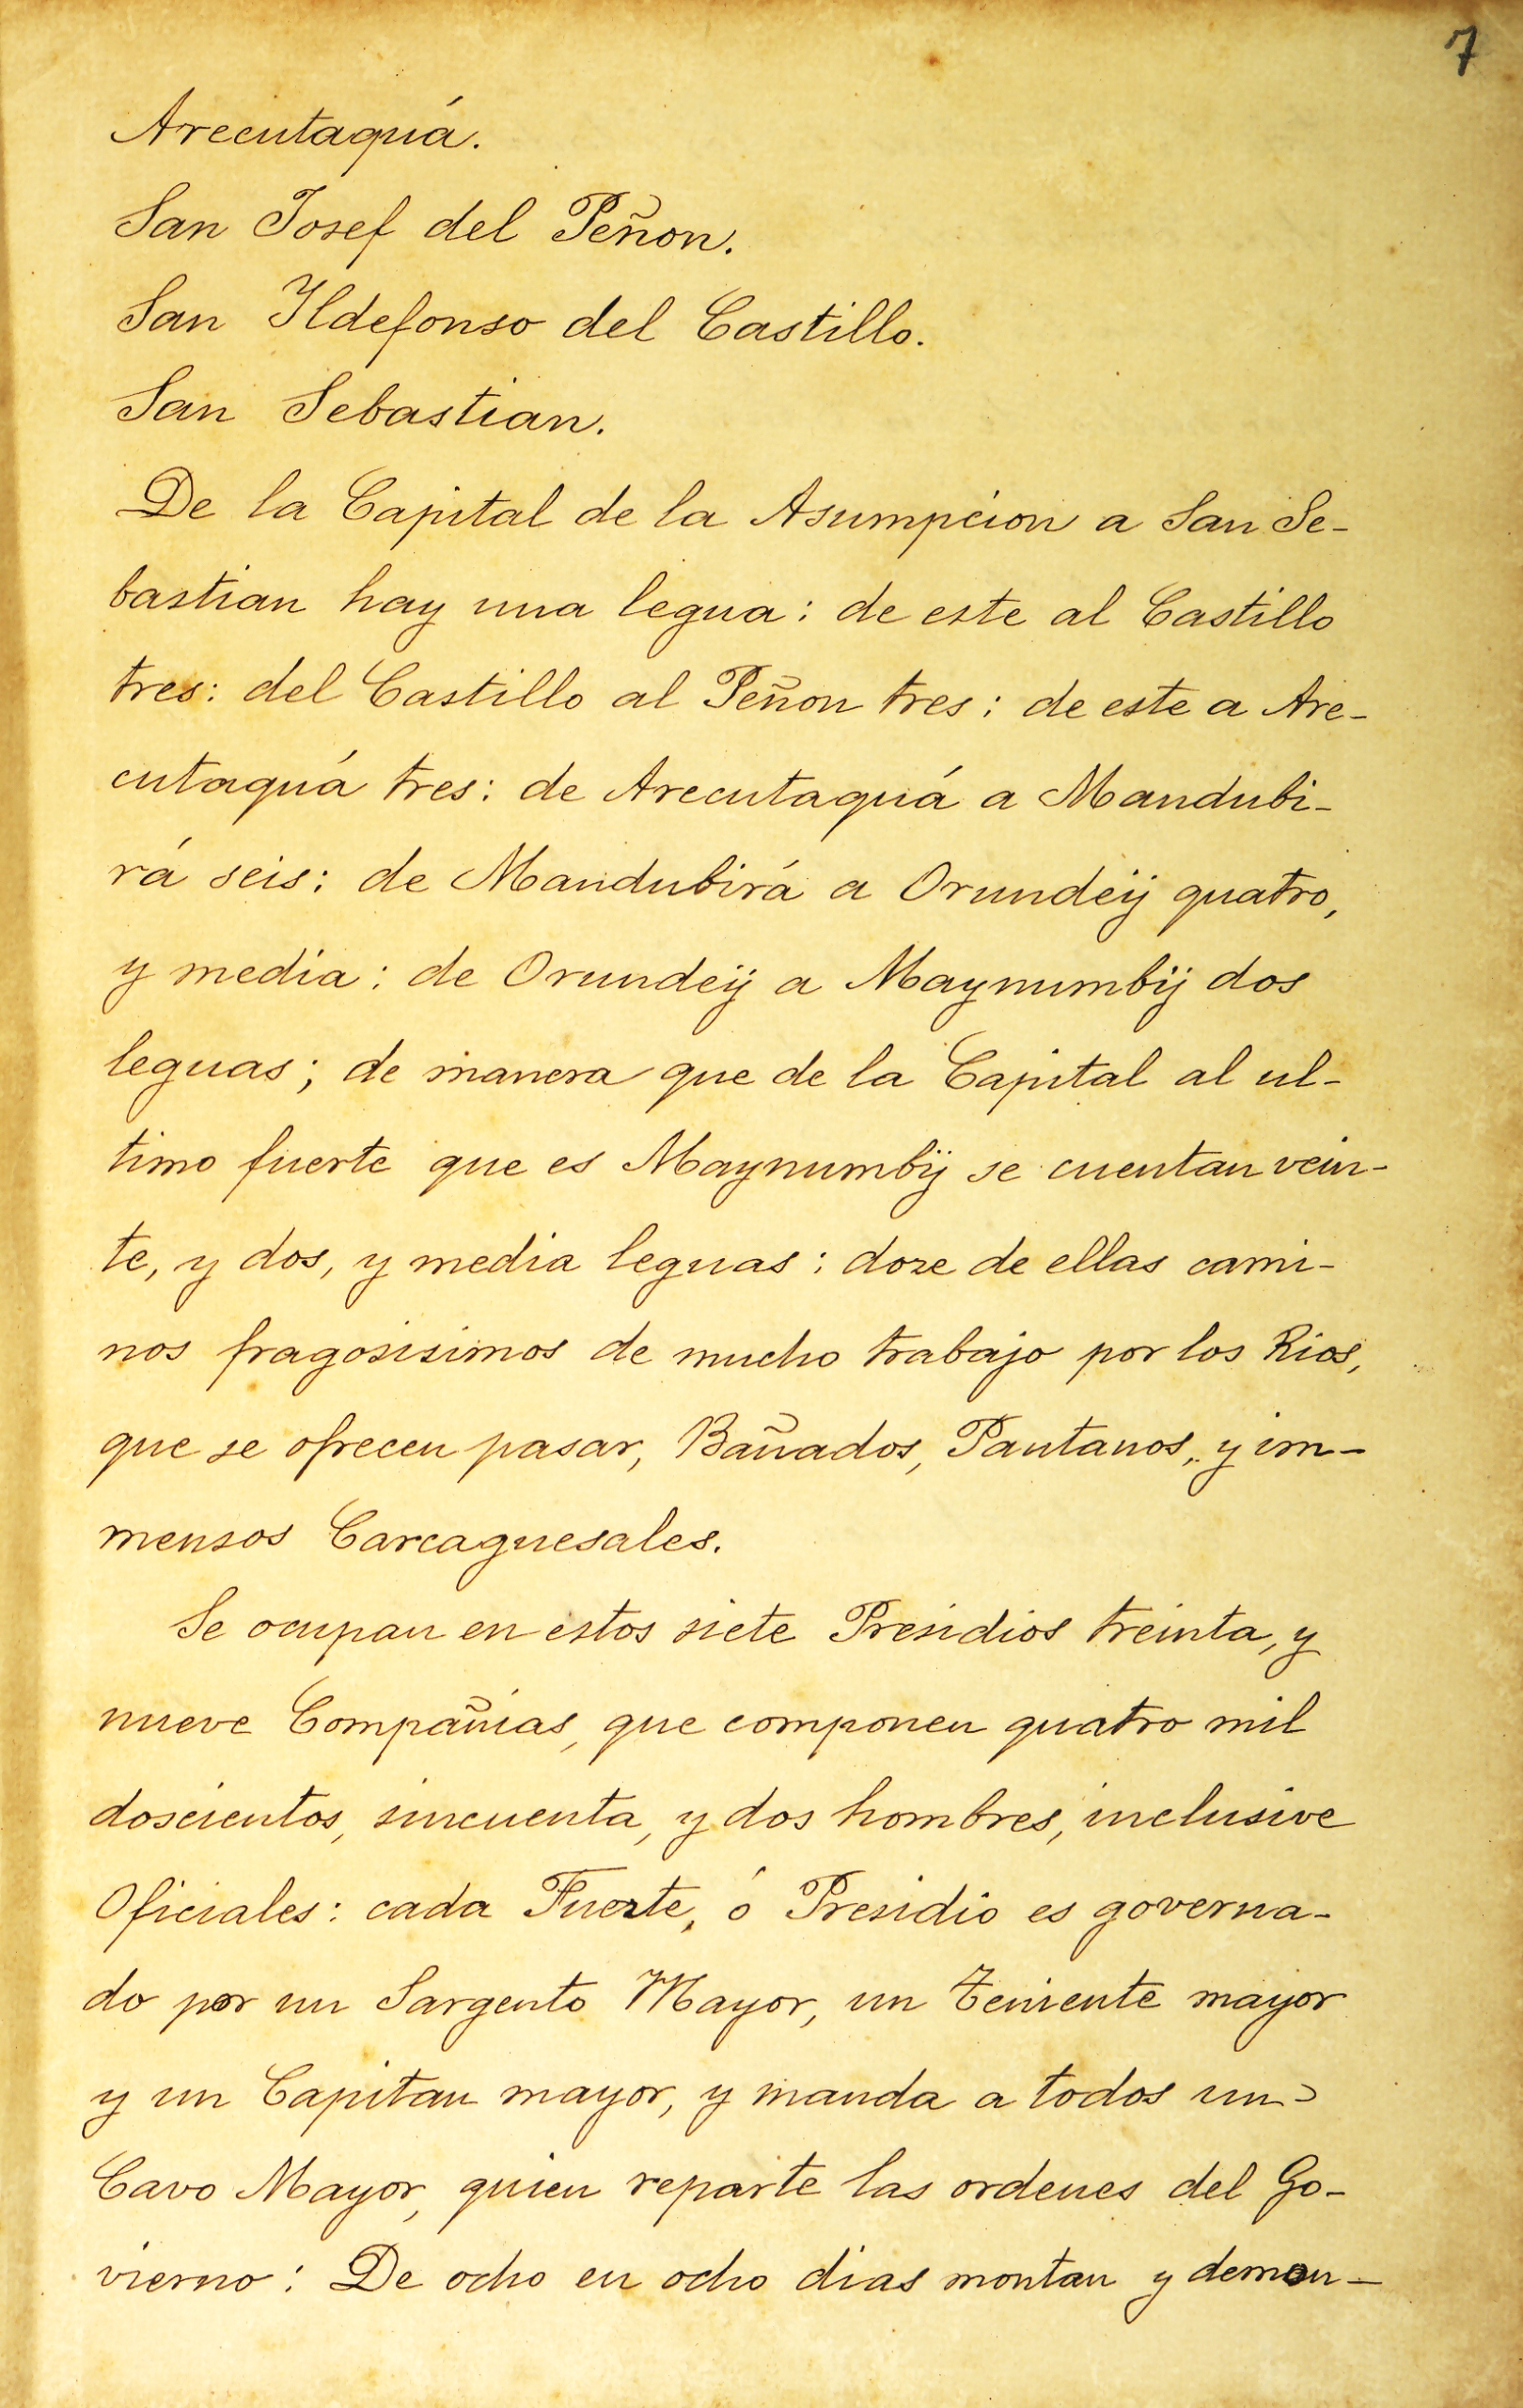 7
Arecutaquá.
San Josef del Peñon.
San Ildefonso del Castillo.
San Sebastian.
De la Capital de la Asumpcion a San Se-
bastian hay una legua: de este al Castillo
tres: del Castillo al Peñon tres: de este a Are-
cutaquá tres: de Arecutaquá a Mandubi-
rá seis: de Mandubirá a Orundeÿ quatro,
y media: de Orundeÿ a Maynumbÿ dos
leguas; de manera que de la Capital al ul-
timo fuerte que es Maynumbÿ se cuentan vein-
te, y dos, y media leguas: doze de ellas cami-
nos fragosisimos de mucho trabajo por los Rios,
que se ofrecen pasar, Bañados, Pantanos, y im-
mensos Carcaguesales.
Se ocupan en estos siete Presidios treinta, y
nueve Compañias, que componen quatro mil
doscientos, sincuenta, y dos hombres, inclusive
Oficiales: cada Fuerte, ó Presidio es governa-
do por un Sargento Mayor, un Teniente mayor
y un Capitan mayor, y manda a todos un
Cavo Mayor, quien reparte las ordenes del Go-
vierno: De ocho en ocho dias montan y demon-